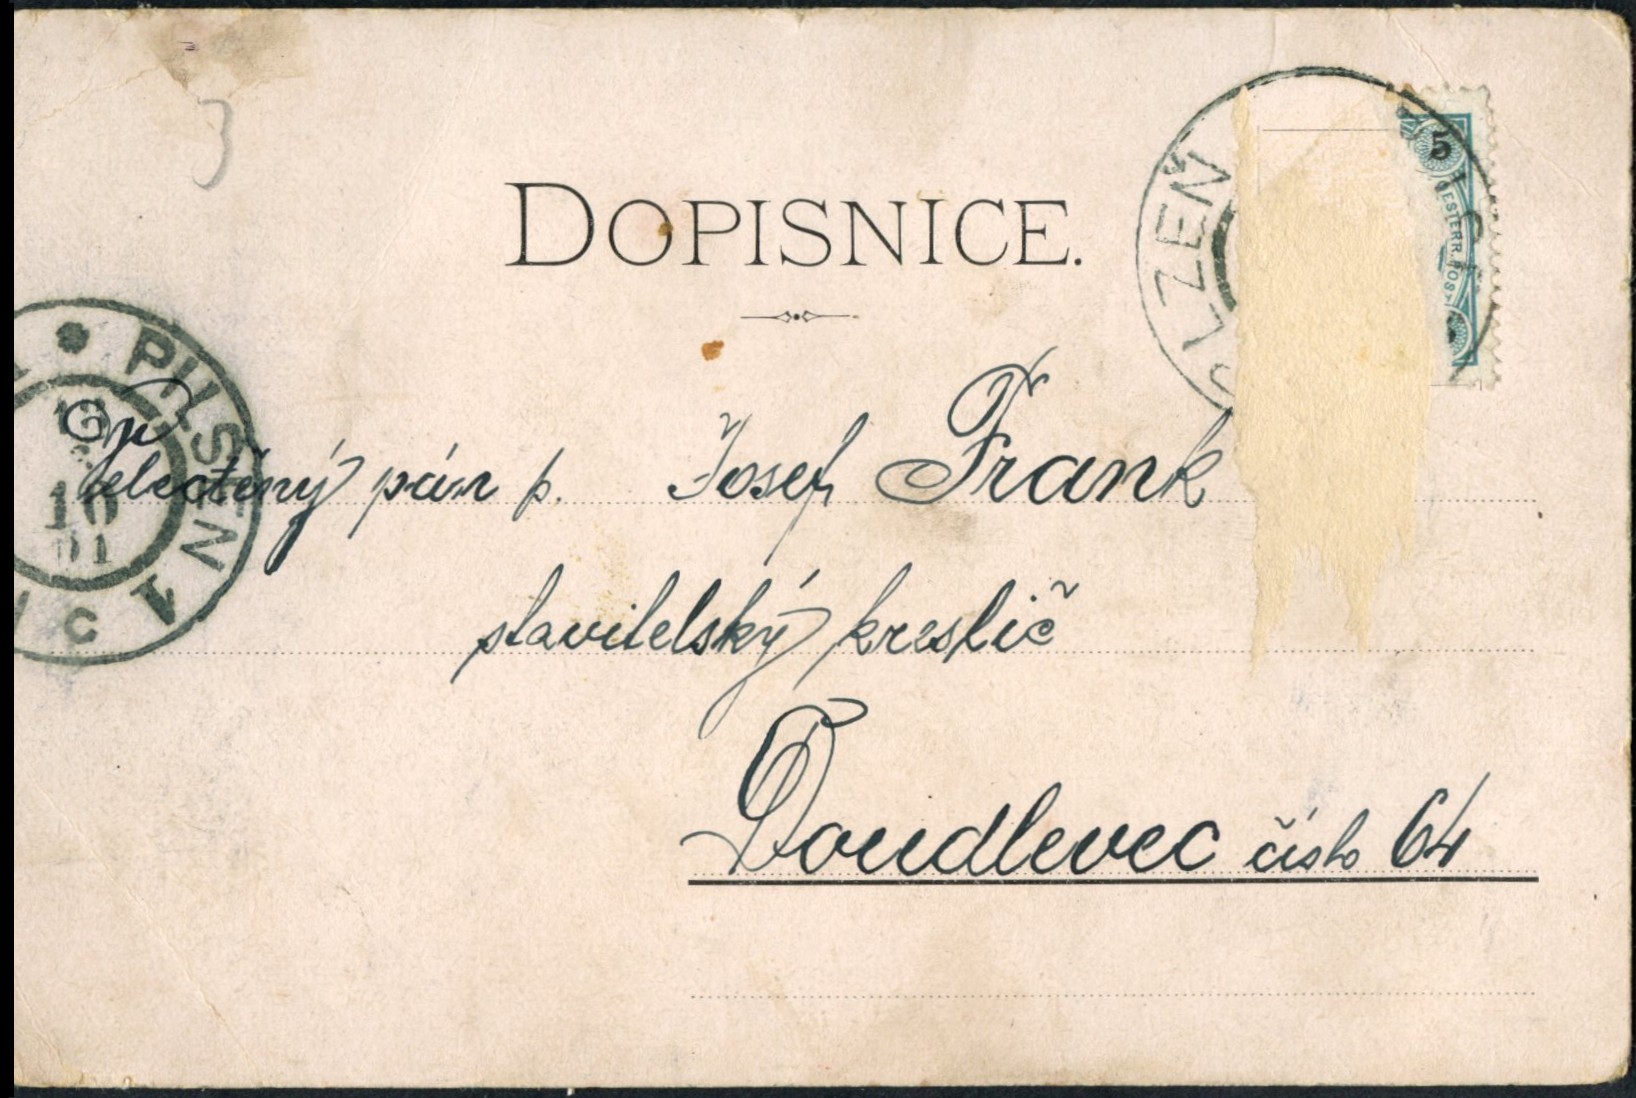 3
DOPISNICE.
PLZEŇ
5
OESTERR. POST
PILSEN 1
10
01
C
pán p. Josef Frank
stavitelský kreslič
Doudlevec číslo 64